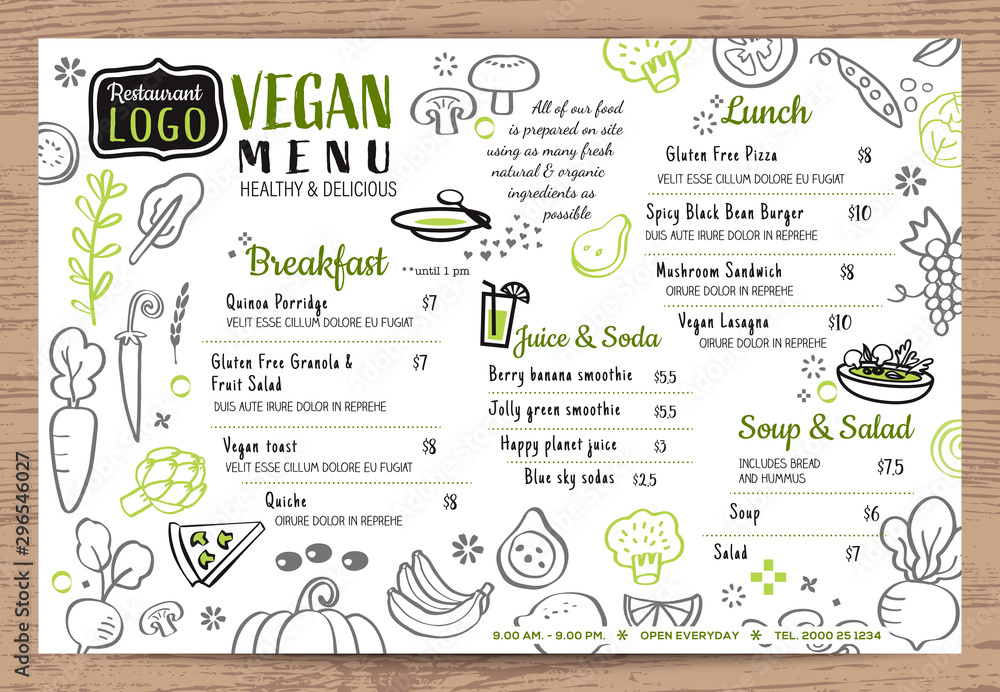 Restaurant
LOGO
VEGAN
MENU
HEALTHY & DELICIOUS
All of our food
is prepared on site
using as many fresh
natural & organic
ingredients as
possible
Breakfast
**until 1 pm
Quinoa Porridge $7
VELIT ESSE CILLUM DOLORE EU FUGIAT
Gluten Free Granola & $7
Fruit Salad
DUIS AUTE IRURE DOLOR IN REPREHE
Vegan toast $8
VELIT ESSE CILLUM DOLORE EU FUGIAT
Quiche $8
OIRURE DOLOR IN REPREHE
Juice & Soda
Berry banana smoothie $5.5
Jolly green smoothie $5.5
Happy planet juice $3
Blue sky sodas $2.5
Lunch
Gluten Free Pizza $8
VELIT ESSE CILLUM DOLORE EU FUGIAT
Spicy Black Bean Burger $10
DUIS AUTE IRURE DOLOR IN REPREHE
Mushroom Sandwich $8
OIRURE DOLOR IN REPREHE
Vegan Lasagna $10
OIRURE DOLOR IN REPREHE
Soup & Salad
INCLUDES BREAD $7.5
AND HUMMUS
Soup $6
Salad $7
9.00 AM. - 9.00 PM. * OPEN EVERYDAY * TEL. 2000 25 1234
Adobe Stock | #296546027